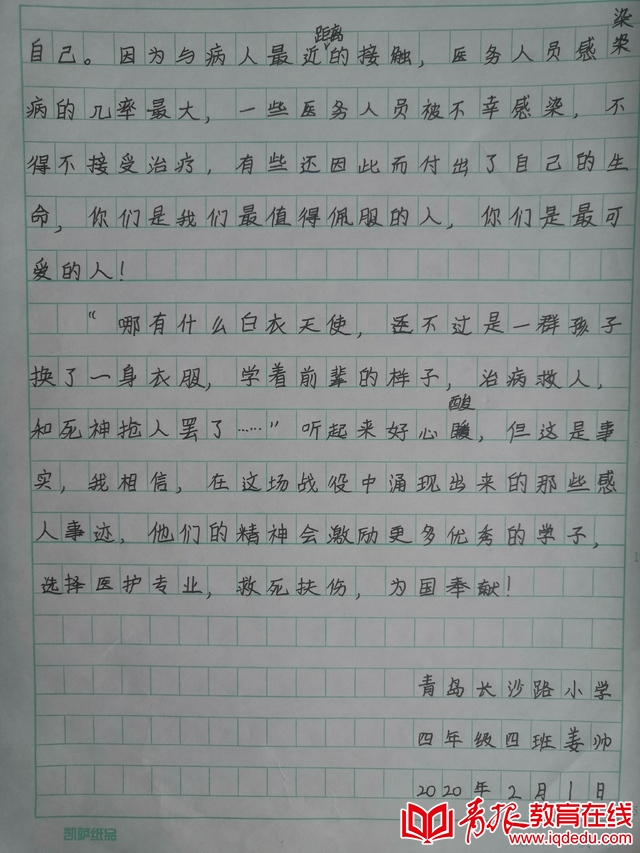 自己。因为与病人最近距离的接触，医务人员感染
病的几率最大，一些医务人员被不幸感染，不
得不接受治疗，有些还因此而付出了自己的生
命，你们是我们最值得佩服的人，你们是最可
爱的人！
“哪有什么白衣天使，还不过是一群孩子
换了一身衣服，学着前辈的样子，治病救人，
和死神抢人罢了……”听起来好心酸，但这是事
实，我相信，在这场战役中涌现出来的那些感
人事迹，他们的精神会激励更多优秀的学子，
选择医护专业，救死扶伤，为国奉献！
青岛长沙路小学
四年级四班姜帅
2020年2月1日
凯萨纸品
青报教育在线
www.iqdedu.com